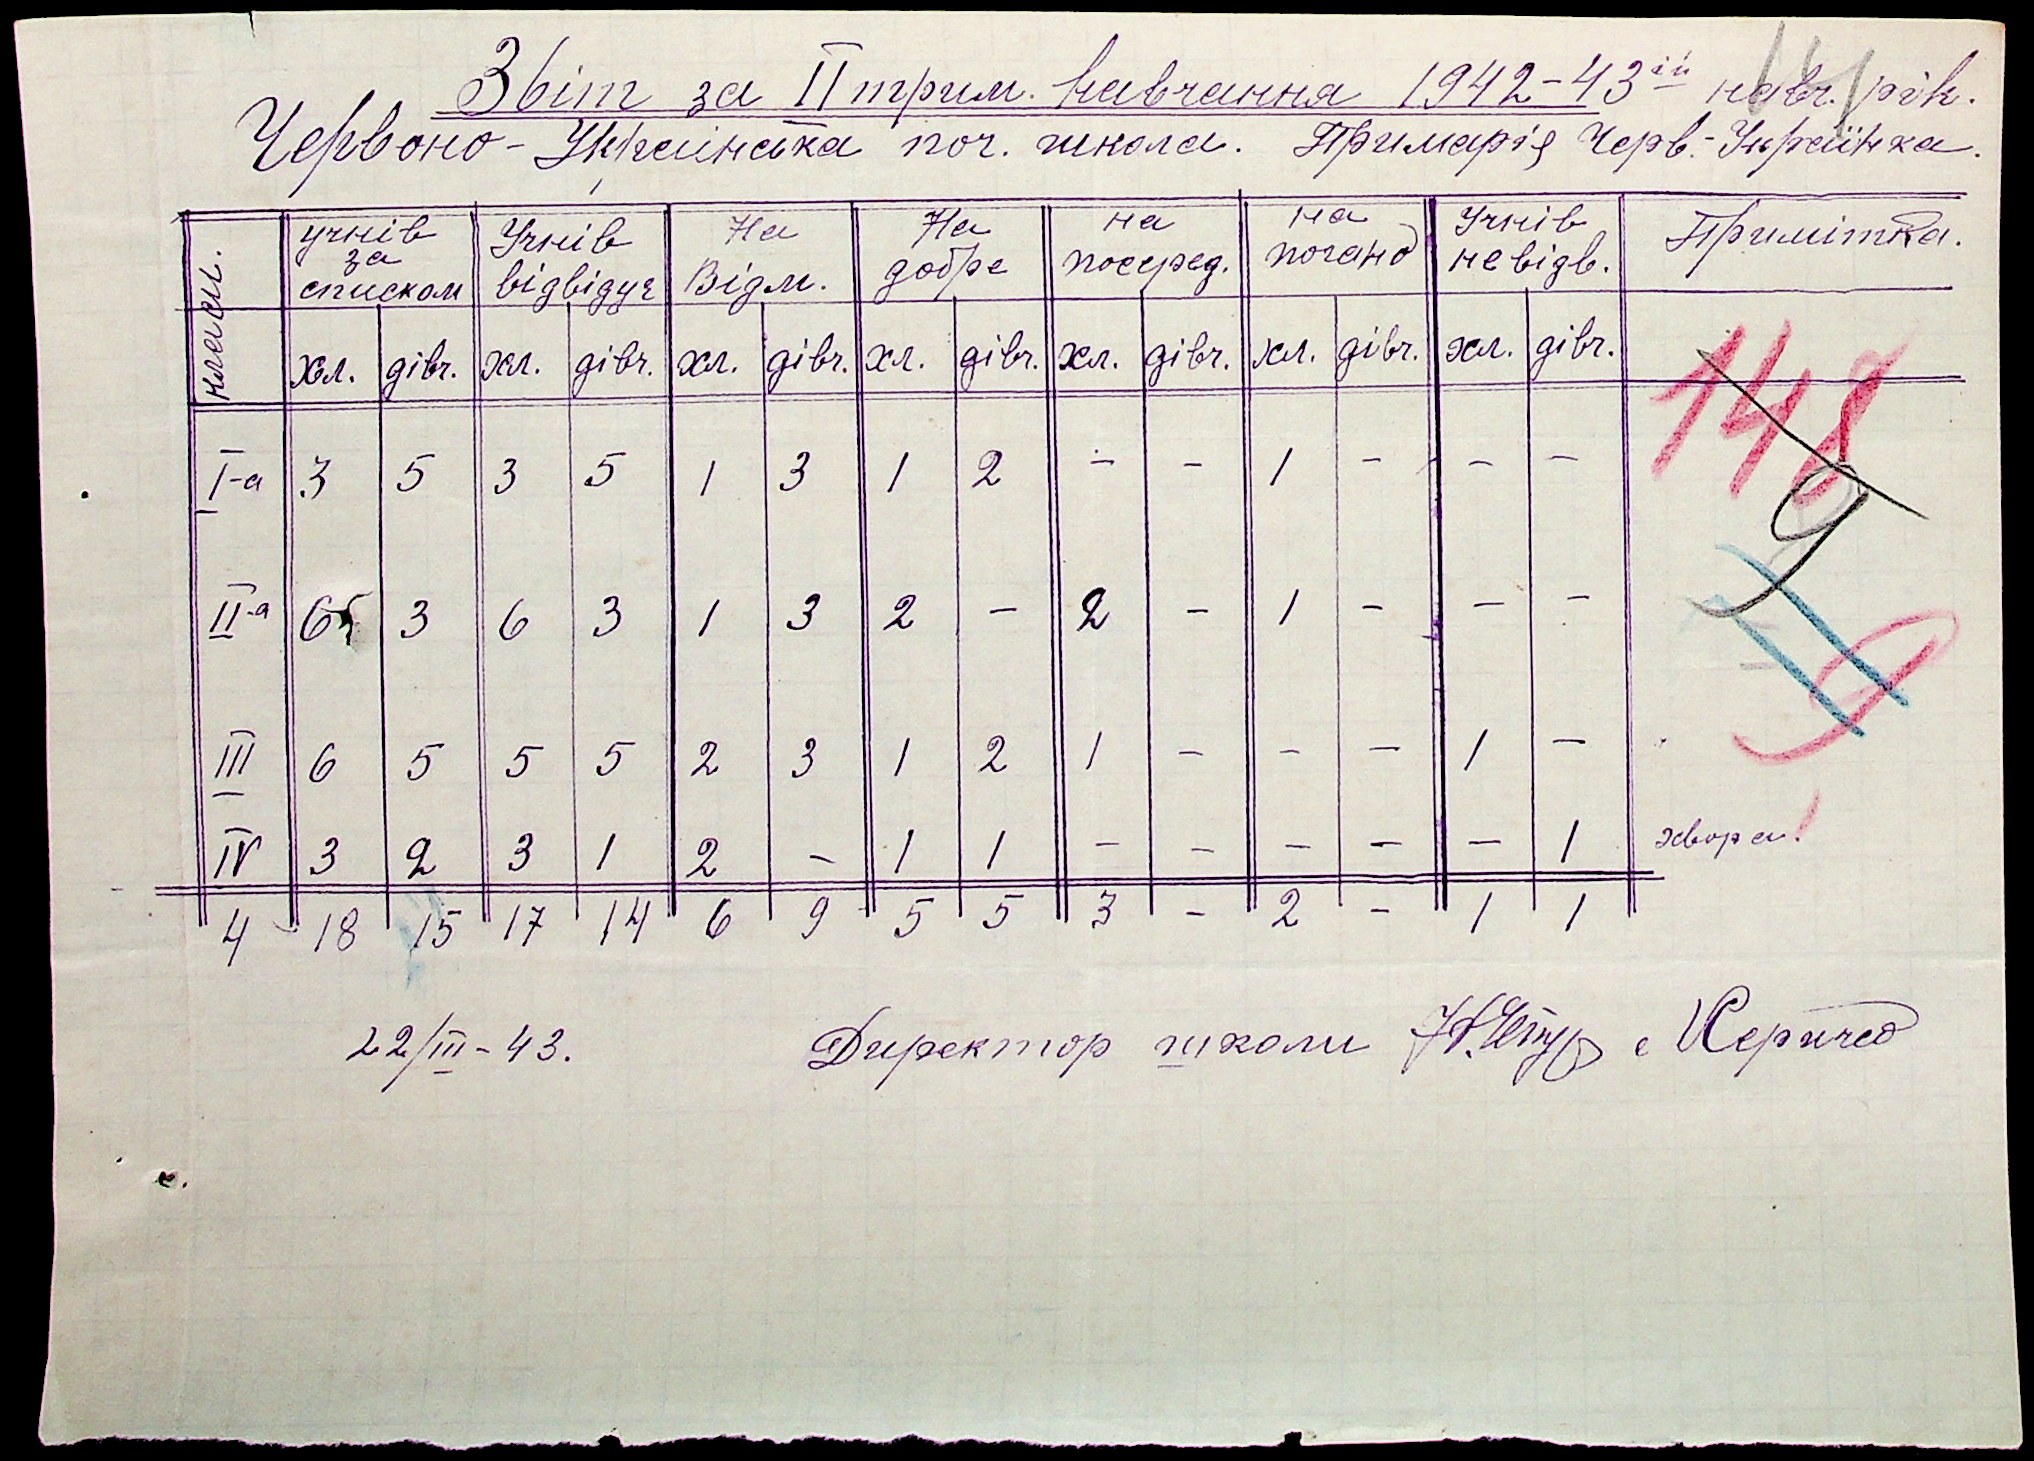 Звіт за II трим. навчання 1942-43ій навч. рік.
Червоно-Українська поч. школа. Примарія Черв.-Українка.
класи. учнів за списком Учнів відвідує На Відм. На добре на посеред. на погано Учнів не відв. Примітка.
хл. дівч. хл. дівч. хл. дівч. хл. дівч. хл. дівч. хл. дівч. хл. дівч.
I-а 3 5 3 5 1 3 1 2 - - 1 - - -
II-а 6 3 6 3 1 3 2 - 2 - 1 - - -
III 6 5 5 5 2 3 1 2 1 - - - 1 -
IV 3 2 3 1 2 - 1 1 - - - - - 1 хвора!
4 18 15 17 14 6 9 5 5 3 - 2 - 1 1
148
9
9
22/III-43. Директор школи